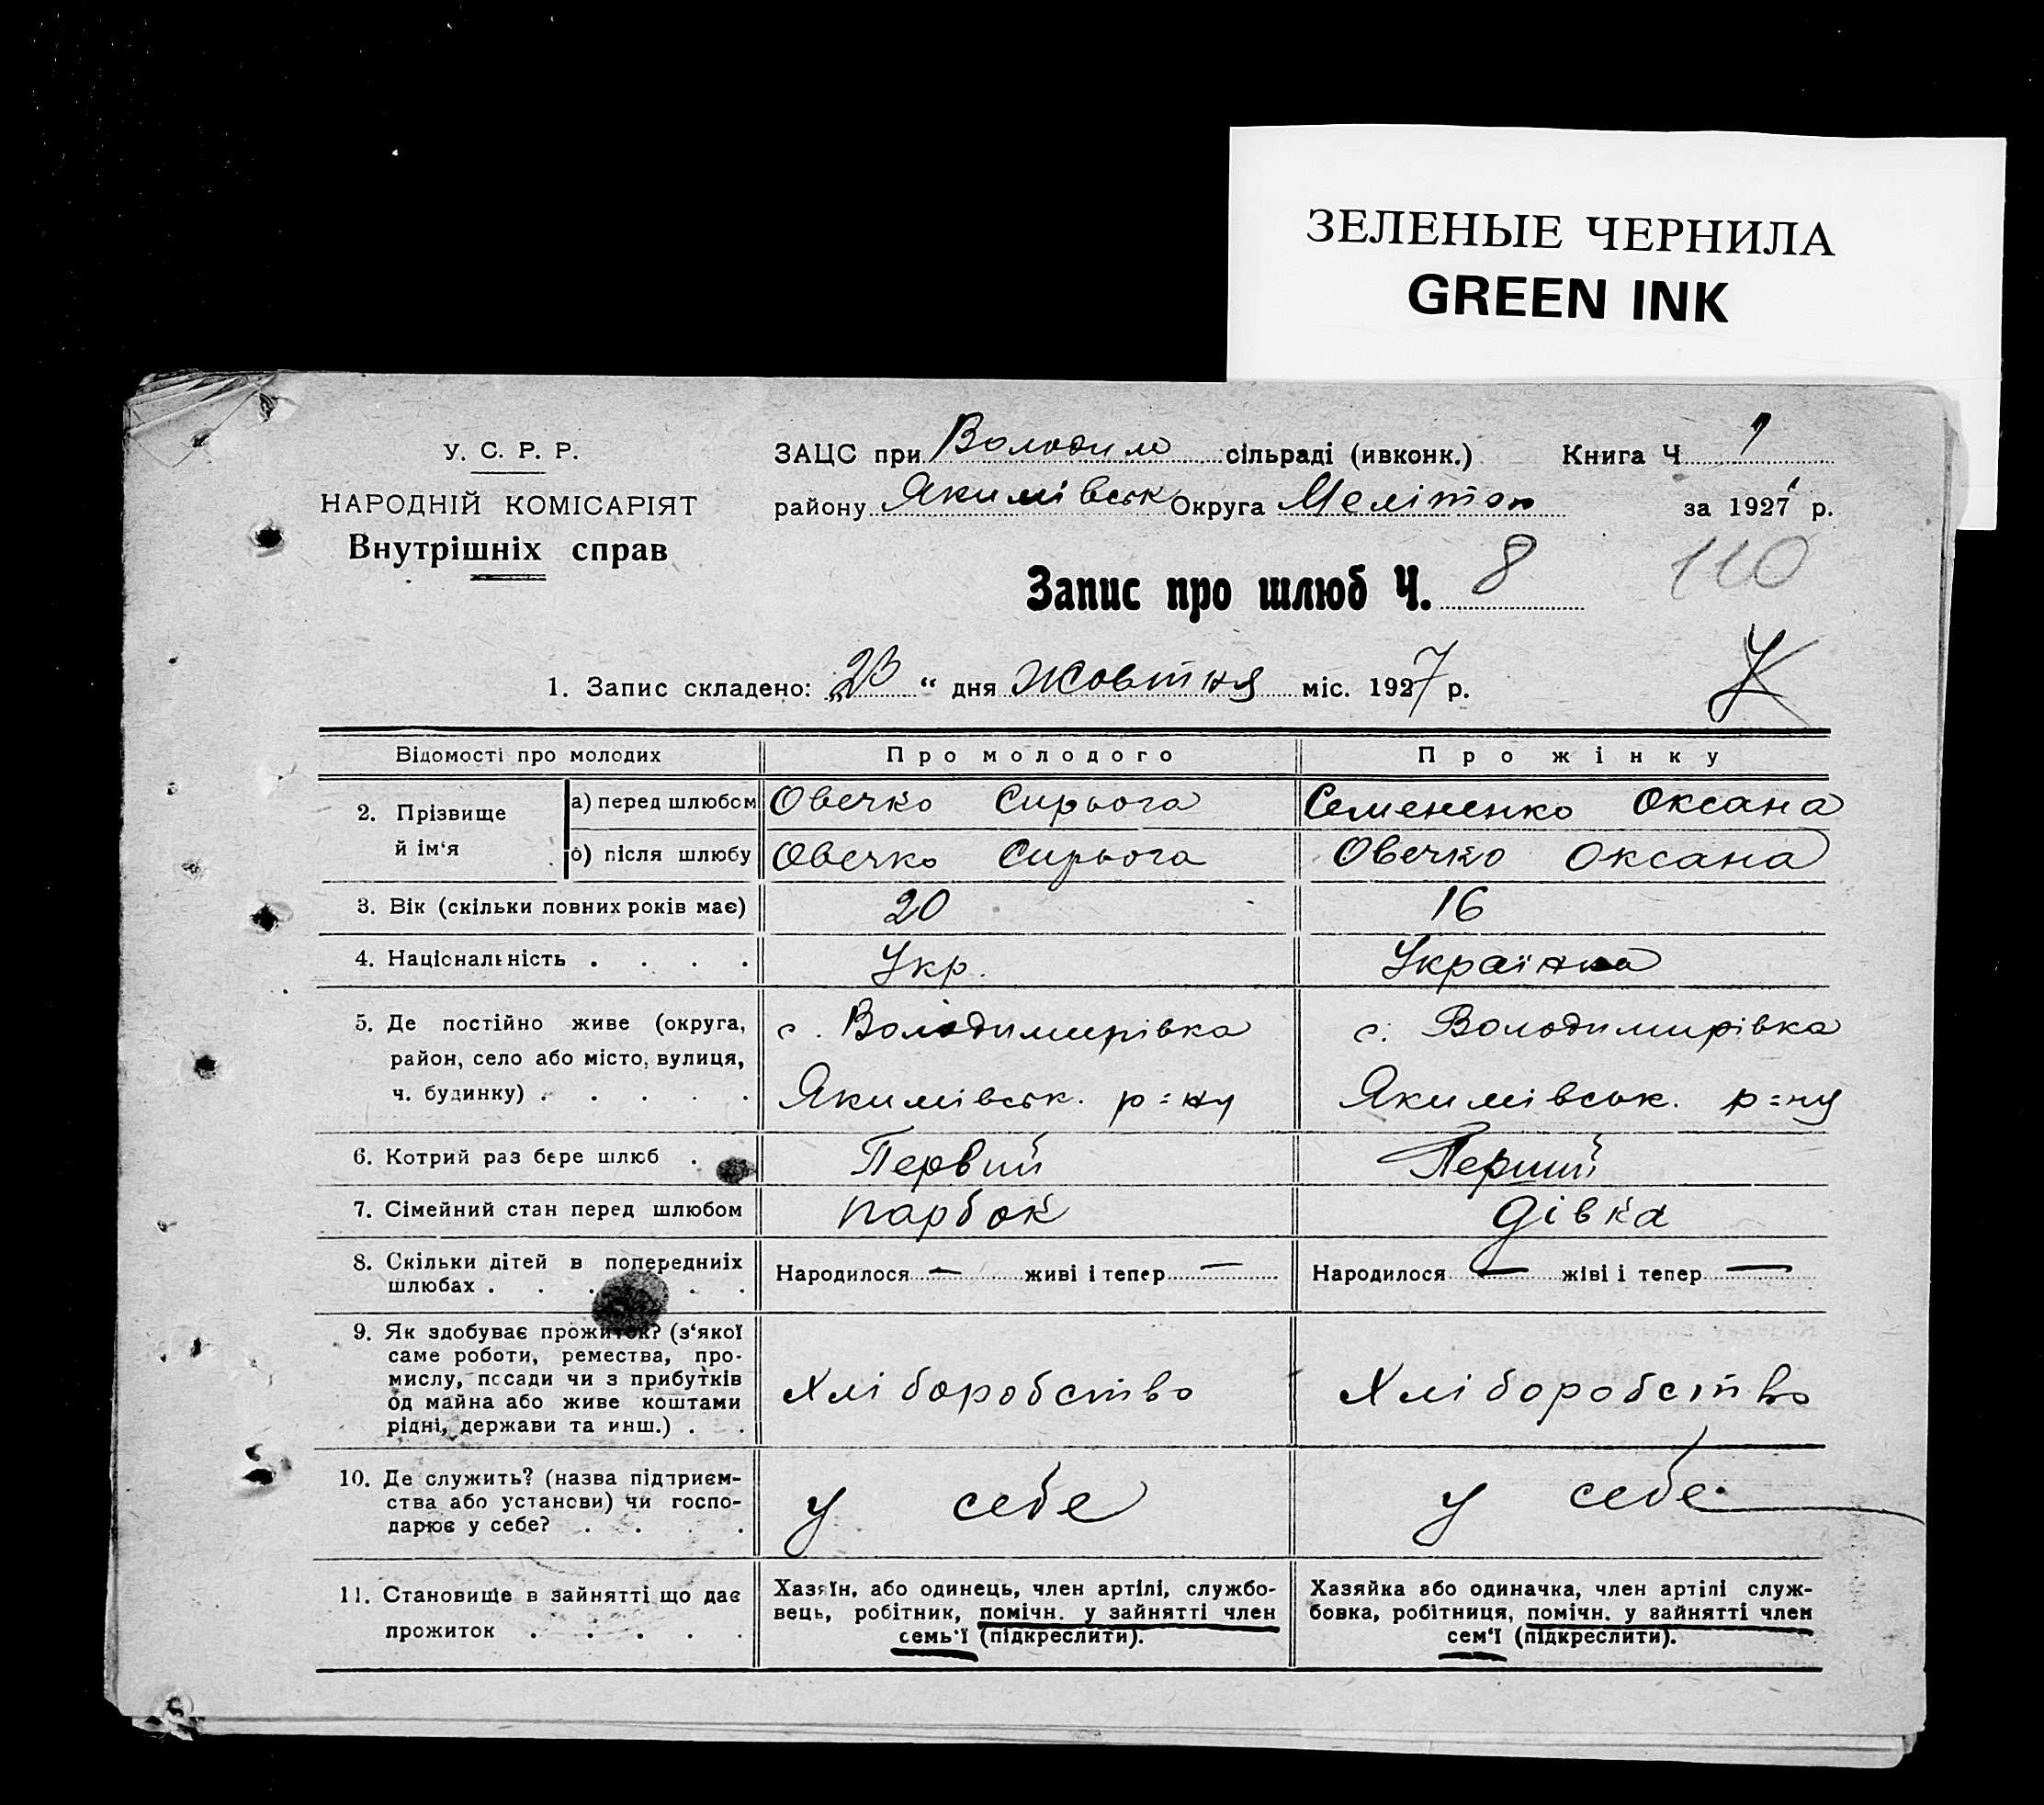 ЗЕЛЕНЫЕ ЧЕРНИЛА
GREEN INK
У. С. Р. Р.
НАРОДНІЙ КОМІСАРІЯТ
Внутрішніх справ
ЗАЦС при Володим сільраді (ивконк.) Книга Ч 1
району Якимівськ Округа Меліт за 1927 р.
Запис про шлюб Ч. 8
110
1. Запис складено: „23“ дня Жовтня міс. 1927 р.
Відомості про молодих Про молодого Про жінку
2. Прізвище й ім‘я
а) перед шлюбом Овечко Сирьога Семененко Оксана
б) після шлюбу Овечко Сирьога Овечко Оксана
3. Вік (скільки повних років має) 20 16
4. Національність . . . . Укр. Українка
5. Де постійно живе (округа, с. Володимирівка с. Володимирівка
район, село або місто, вулиця,
ч. будинку) . . . . . Якимівськ. р=ну Якимівськ. р=ну
6. Котрий раз бере шлюб . Первий Перший
7. Сімейний стан перед шлюбом парбок дівка
8. Скільки дітей в попередніх
шлюбах . . . . . Народилося — живі і тепер — Народилося — жіві і тепер —
9. Як здобуває прожиток? (з‘якої
саме роботи, ремества, про-
мислу, посади чи з прибутків
од майна або живе коштами
рідні, держави та инш.) . . Хліборобство Хліборобство
10. Де служить? (назва підприєм-
ства або установи) чи госпо-
дарює у себе? . . . . у себе у себе
11. Становище в зайнятті що дає
прожиток . . . . .
Хазяїн, або одинець, член артілі, службо-
вець, робітник, помічн. у зайнятті член
семь‘ї (підкреслити).
Хазяйка або одиначка, член артілі служ-
бовка, робітниця, помічн. у зайнятті член
сем‘ї (підкреслити).